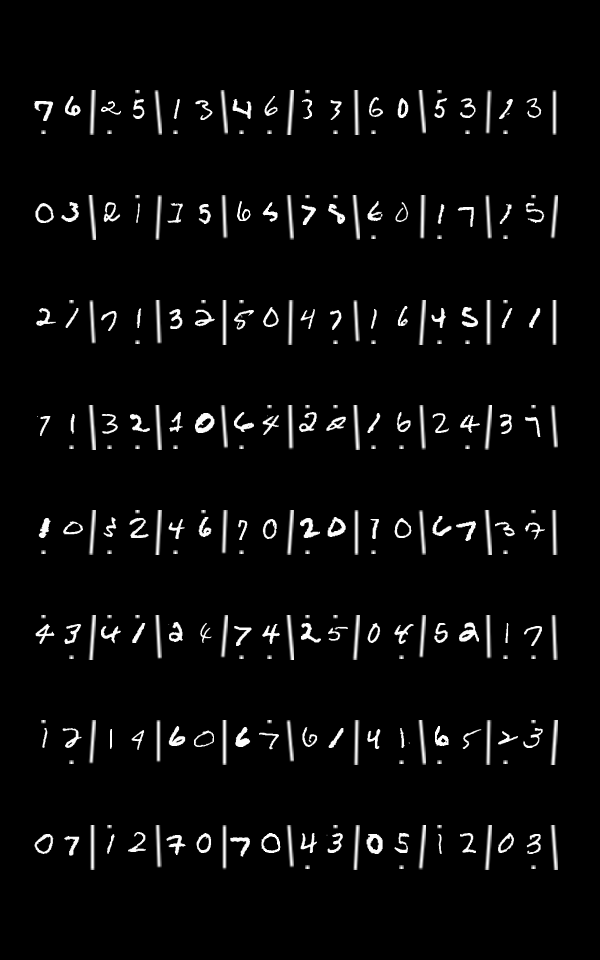 7 6 | 2 5 | 1 3 | 4 6 | 3 3 | 6 0 | 5 3 | 1 3 |
0 3 | 2 1 | 1 5 | 6 5 | 7 5 | 6 0 | 1 7 | 1 5 |
2 1 | 7 1 | 3 2 | 5 0 | 4 7 | 1 6 | 4 5 | 1 1 |
7 1 | 3 2 | 1 0 | 6 4 | 2 2 | 1 6 | 2 4 | 3 7 |
1 0 | 3 2 | 4 6 | 7 0 | 2 0 | 1 0 | 6 7 | 3 7 |
4 3 | 4 1 | 2 4 | 7 4 | 2 5 | 0 4 | 5 2 | 1 7 |
1 2 | 1 4 | 6 0 | 6 7 | 6 1 | 4 1 | 6 5 | 2 3 |
0 7 | 1 2 | 7 0 | 7 0 | 4 3 | 0 5 | 1 2 | 0 3 |